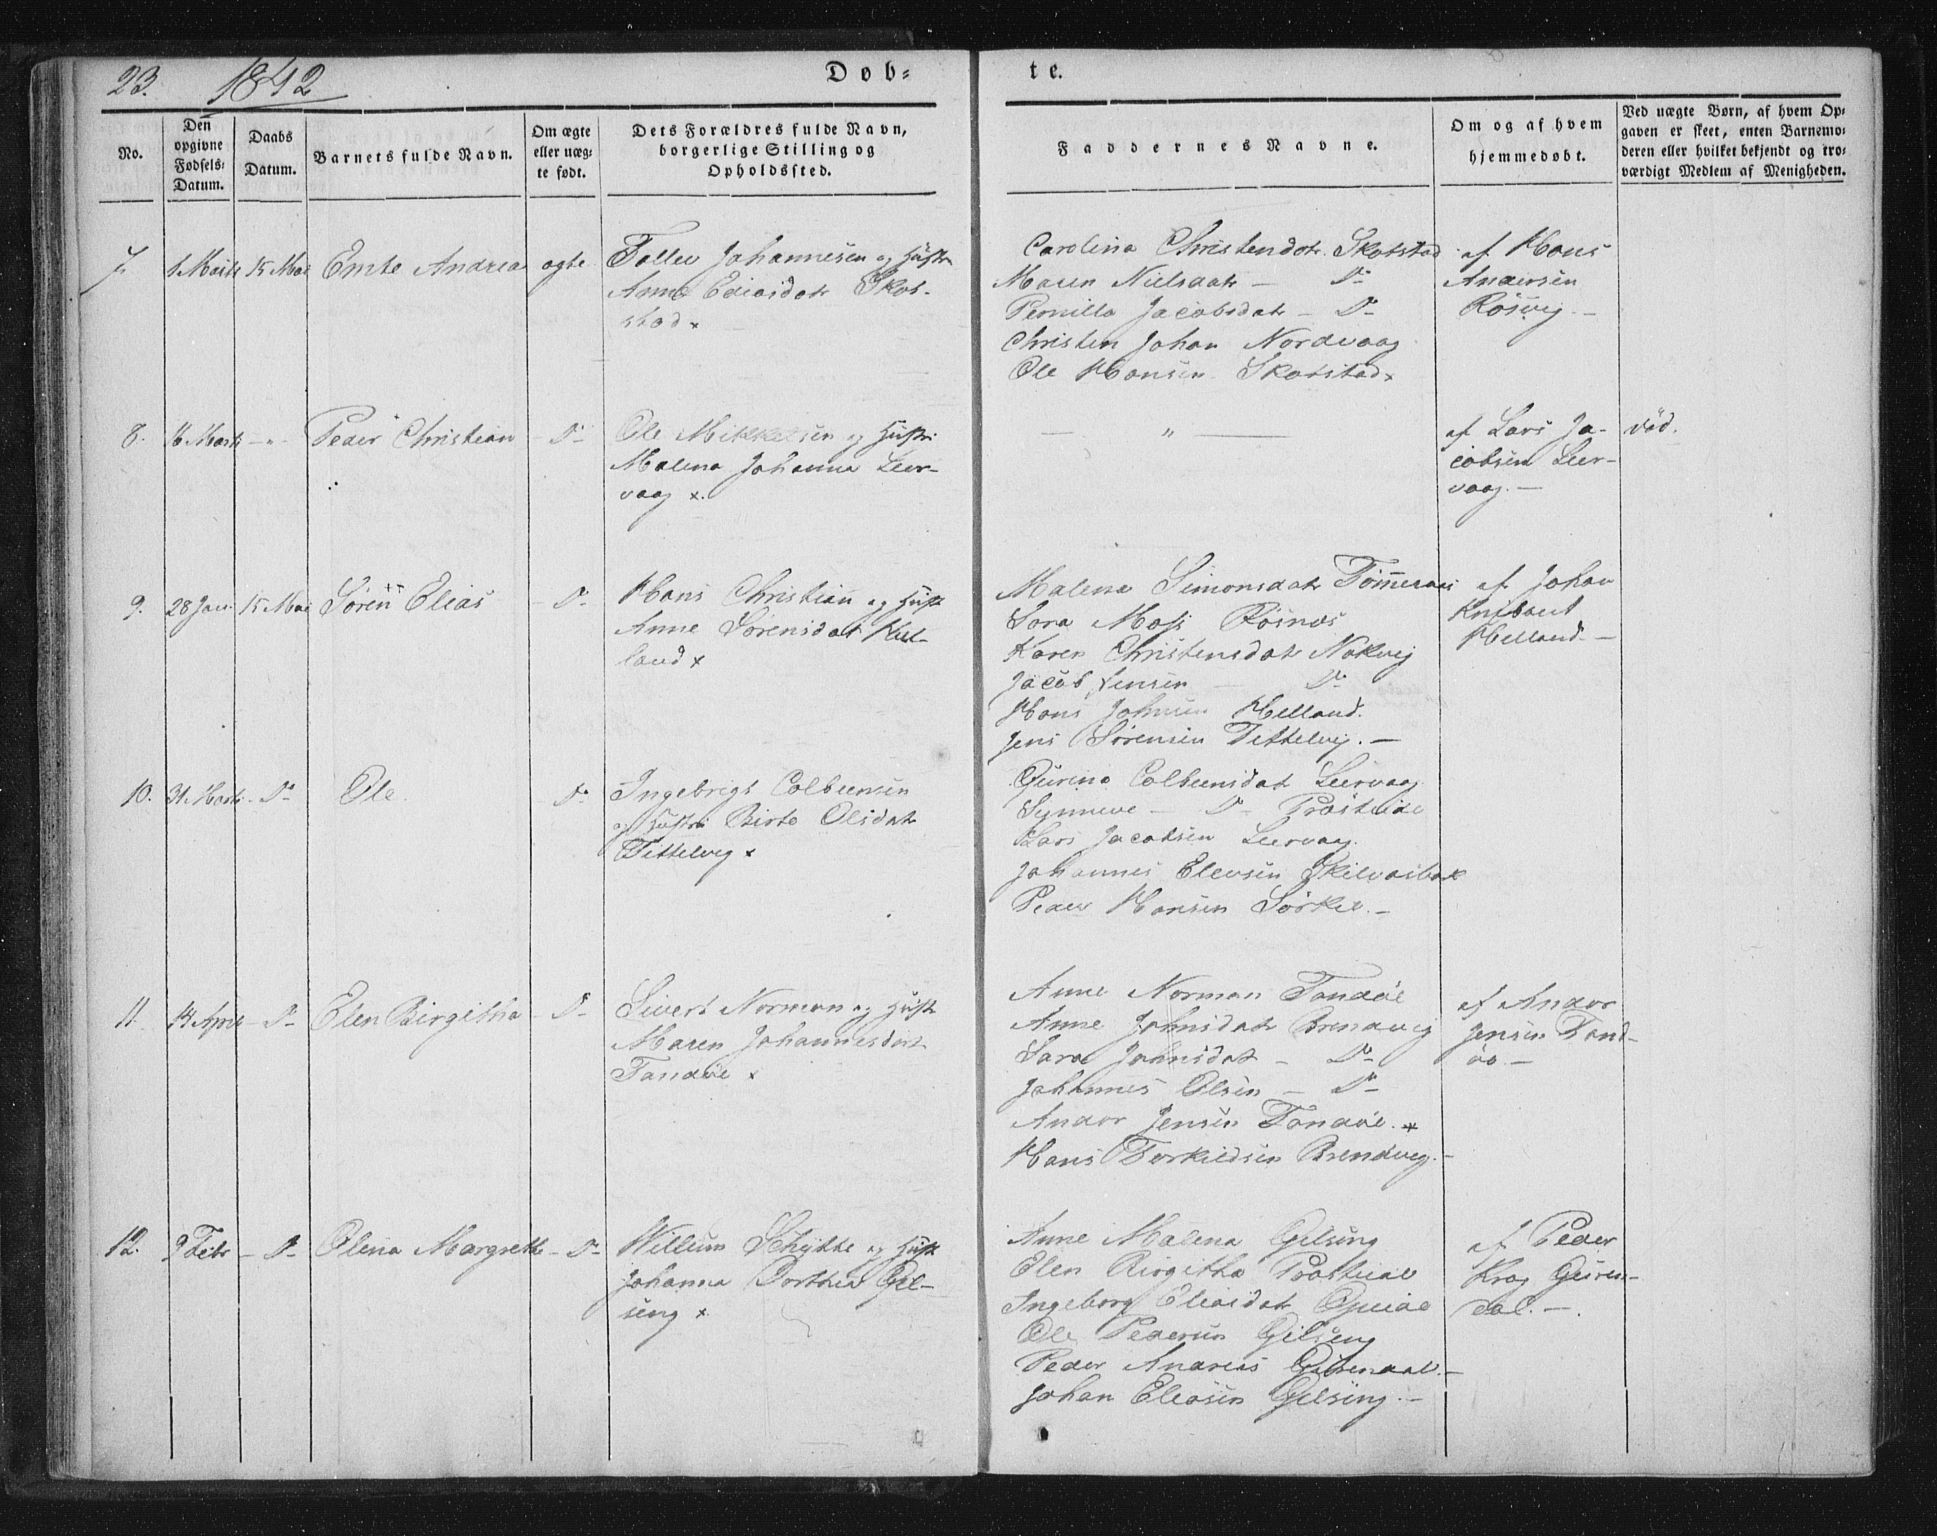 23. 1842 Døb-
te.
No.
Den opgivne Fødsels-Datum.
Daabs Datum.
Barnets fulde Navn.
Om ægte eller uæg-te født.
Dets Forældres fulde Navn, borgerlige Stilling og Opholdssted.
Faddernes Navne.
Om og af hvem hjemmedøbt.
Ved uægte Børn, af hvem Op-gaven er skeet, enten Barnemo-deren eller hvilket bekjendt og tro-værdigt Medlem af Menigheden.
7. 1 Marts 15 Mai Emte Andrea ægte
Tollev Johannesen og Hustr
Anne Eliasdatr Skot-
stad x
Carolina Christendatr Skotstad
Maren Nielsdatr - Do
Pernilla Jacobsdatr - Do
Christen Johan Nordvaag
Ole Hansen Skotstad x
af Hans
Andersen
Røsvig. -
8. 16 Marts - " - Peder Christian - Do -
Ole Mikkelsen og Hustr:
Malena Johanna Leer-
vaag x.
- " -
af Lars Ja-
cobsen Leer-
vaag. -
död.
9. 28 Jan 15 Mai Sören Elias - Do -
Hans Christian og Hustr
Anne Sörensdatr Hel-
land x
Malena Simonsdatr Tømmeraas
Sara Moss Røsnæs
Karen Christensdatr Nokvig
Jacob Jensen - Do
Hans Johnsen Helland.
Jens Sørensen Tettelvig. -
af Johan
Helland. -
10. 31 Marts - Do - Ole. Do
Ingebrigt Colbeensen
og Hustr: Birte Olsdatr
Tittelvig x
Gurina Colbeensdatr Leervaag
Synneve - Do - Præsteide
Lars Jacobsen Leervaag.
Johannes Elevsen Skilvasbak
Peder Hansen Sørkil. -
11. 14 April - Do - Elen Birgitha - Do -
Sivert Norman og Hustr
Maren Johannesdatr
Tandøe x
Anne Norman Tandøe
Anne Johnsdatr Brendvig
Sara Johnsdatr - Do -
Johannes Olsen - Do -
Andor Jensen Tandøe. x
Hans Torkildsen Brendvig. -
af Andor
Jensen Tand-
øe -
12. 9 Febr - Do - Olena Margrethe - Do -
Willum Schytte og Hustr
Johanna Dorthea Gil-
seng x
Anne Malena Gilseng
Elen Birgitha Præsteide
Ingeborg Eliasdatr
Ole Pedersen Gilseng
Peder Andreas
Johan Eliasen Gilseng. -
af Peder
Krog
dal. -